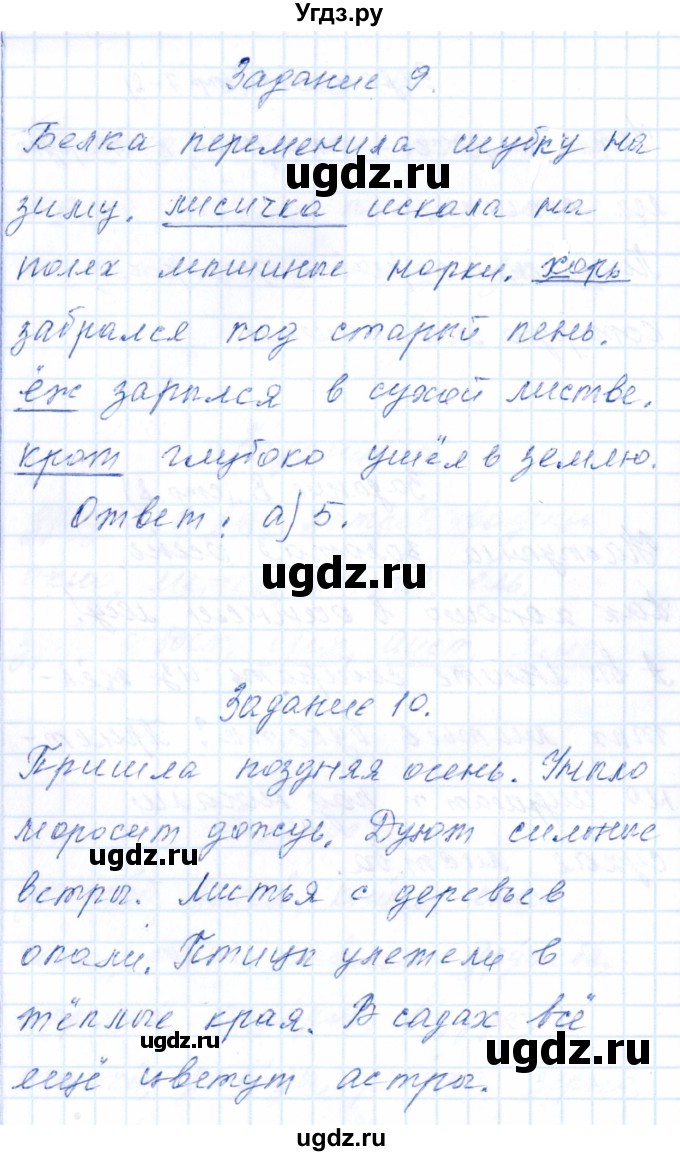 Угдз.ру
Задание 9.
Белка переменила шубку на
ugdz.ru
зиму. лисичка искала на
полях мышиные норки. хорь
забрался под старый пень.
ugdz.ru
ёж зарылся в сухой листве.
крот глубоко ушёл в землю.
Ответ: а) 5.
ugdz.ru
Задание 10.
Пришла поздняя осень. Уныло
моросит дождь. Дуют сильные
ugdz.ru
ветры. Листья с деревьев
опали. Птицы улетели в
тёплые края. В садах всё
ugdz.ru
ugdz.ru
ещё цветут астры.
ugdz.ru